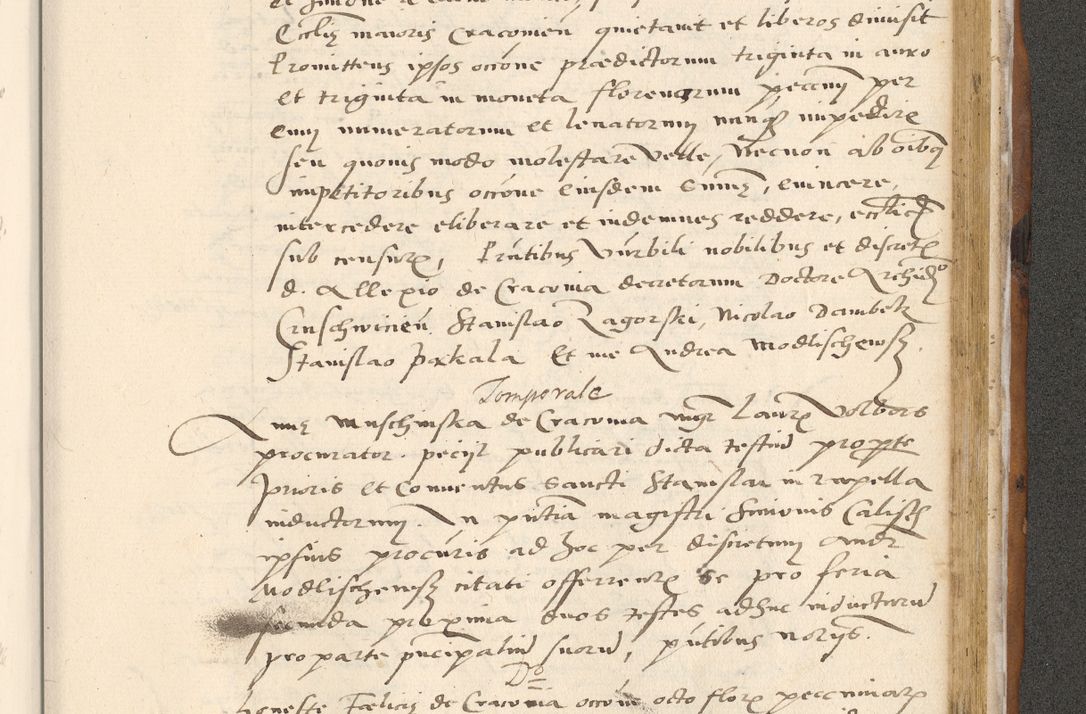 Eccliȩ maioris Cracovien quietavit et liberos dimisit
Promittens ipsos occōne prædictorum triginta in auro
Et triginta in moneta florenorum pecunij per
eum numeratorum et levatorum nunq̄ impedire
seu quovis modo molestare velle, Necnon ab oibq
impetitoribus occōne eiusdem sum̄e, evincere,
intercedere eliberare et indemnes reddere, eccl̄ica
sub censura, Pn̄tibus Vn̄rbili nobilibus et discretis
d. Allexio de Cracovia decretorum Doctore Archid°
Cruschvicien, Stanislao Zagorski, Nicolao Dambek
Stanislao pækala Et me Andrea Modlischewsky.
Temporale
Annȩ Muschinska de Cracovia mgr Laurȩ Volbors
procurator petijt publicari dicta testiū pro p̄te
prioris et Conventus sancti Stanislai in rupella
inductorum. In pn̄tia magistri Simonis Calisch
ipsius procuris ad hoc per discretum Andr
Modlischewsky citati offerentis se pro feria
secunda proxima duos testes adhuc inducturū
pro parte principaliū suorū, pn̄tibus norijs.
D°
honeste Felicis de Cracovia occōne octo flor pecuniariȩ